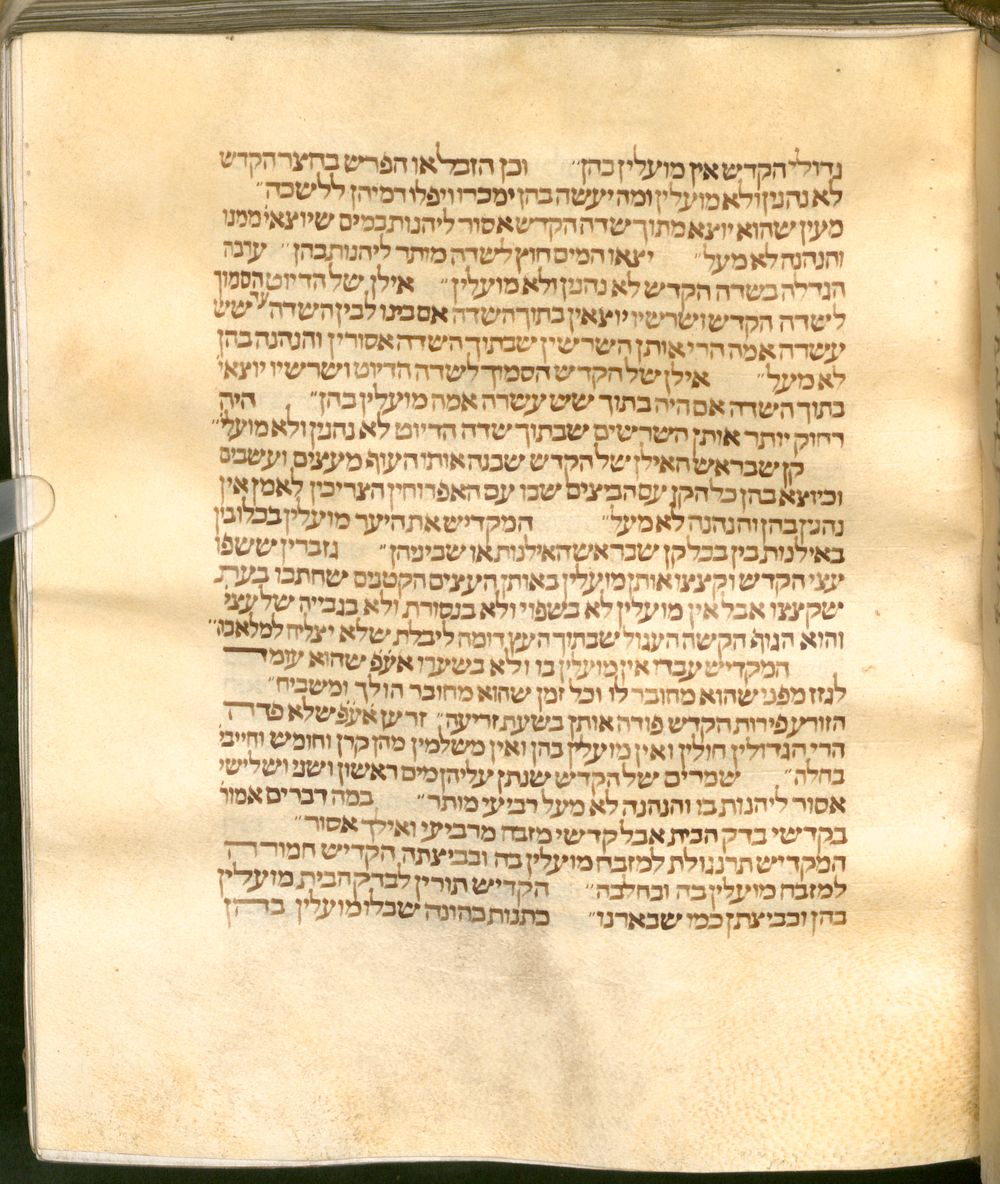 גדולי הקדש אין מועלין בהן״ וכן הזבל או הפרש בחצר הקדש
לא נהנין ולא מועלין ומה יעשה בהן ימכרו ויפלו דמיהן ללשכה״
מעין שהוא יוצא מתוך שדה הקדש אסור ליהנות במים שיוצאי׳ ממנו
והנהנה לא מעל״ יצאו המים חוץ לשדה מותר ליהנות בהן״ ערבה
הגדלה בשדה הקדש לא נהנין ולא מועלין״ אילן של הדיוט הסמוך
לשדה הקדש ושרשיו יוצאין בתוך השדה אם בינו לבין השדה עד שש
עשרה אמה הרי אותן השרשין שבתוך השדה אסורין והנהנה בהן
לא מעל״ אילן של הקדש הסמוך לשדה הדיוט ושרשיו יוצאי׳
בתוך השדה אם היה בתוך שש עשרה אמה מועלין בהן״ היה
רחוק יותר אותן השרשים שבתוך שדה הדיוט לא נהנין ולא מועלי׳״
קן שבראש האילן של הקדש שבנה אותו העוף מעצים ועשבים
וכיוצא בהן כל הקן עם הביצים שבו עם האפרוחין הצריכין לאמן אין
נהנין בהן והנהנה לא מעל״ המקדיש את היער מועלין בכלו בין
באילנות בין בכל קן שבראש האילנות או שביניהן״ גזברין ששפו
עצי הקדש וקצצו אותן מועלין באותן העצים הקטנים שחתכו בעת
שקצצו אבל אין מועלין לא בשפוי ולא בנסורת ולא בנבייה של עצי׳
והוא הגוף הקשה העגול שבתוך העץ דומה ליבלת שלא יצליח למלאכה״
המקדיש עבדו אין מועלין בו ולא בשערו אע״פ שהוא עומד
לגזז מפני שהוא מחובר לו וכל זמן שהוא מחובר הולך ומשביח״
הזורע פירות הקדש פודה אותן בשעת זריעה״ זרען אע״פ שלא פדה
הרי הגדולין חולין ואין מועלין בהן ואין משלמין מהן קרן וחומש וחייבי׳
בחלה״ שמרים של הקדש שנתן עליהן מים ראשון ושני ושלישי
אסור ליהנות בו והנהנה לא מעל רביעי מותר״ במה דברים אמור׳
בקדשי בדק הבית אבל קדשי מזבח מרביעי ואילך אסור״
המקדיש תרנגולת למזבח מועלין בה ובביצתה הקדיש חמורה
למזבח מועלין בה ובחלבה״ הקדיש תורין לבדק הבית מועלין
בהן ובביצתן כמו שבארנו״ כתנות כהונה שבלו מועלין בהן